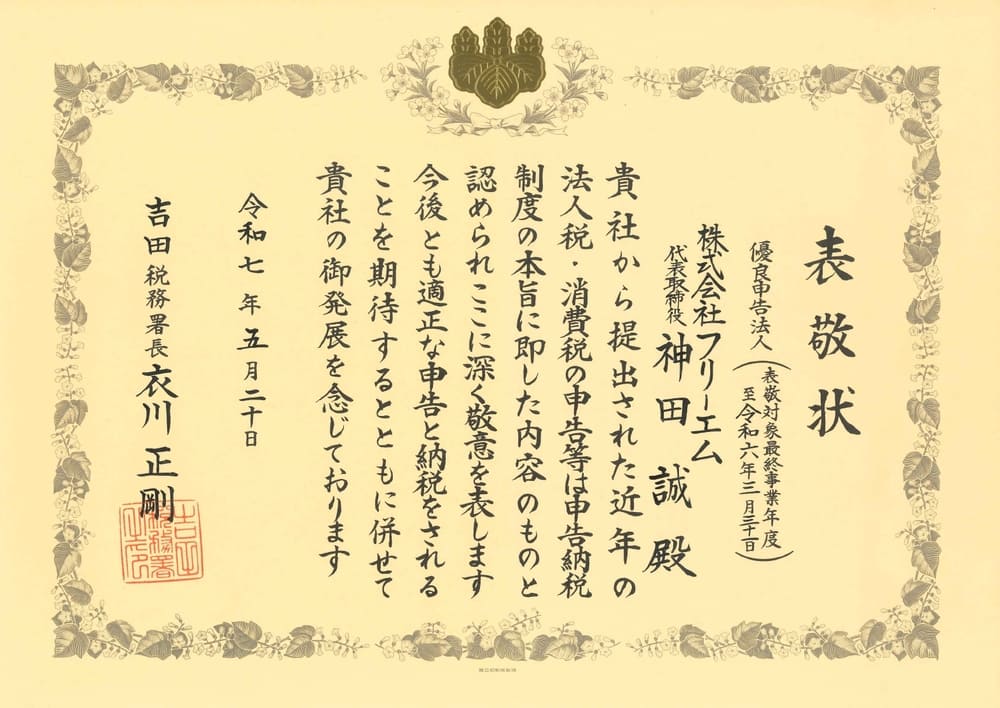 表敬状
優良申告法人
(表敬対象最終事業年度
至令和六年三月三十一日)
株式会社フリーエム
代表取締役 神田 誠 殿
貴社から提出された近年の
法人税・消費税の申告等は申告納税
制度の本旨に即した内容のものと
認められここに深く敬意を表します
今後とも適正な申告と納税をされる
ことを期待するとともに併せて
貴社の御発展を念じております
令和七年五月二十日
吉田税務署長 衣川 正剛